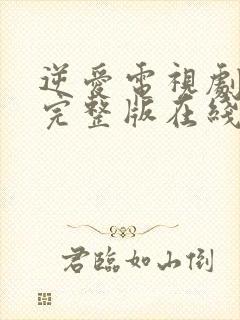 逆愛電視劇
完整版在綫
君臨如山倒